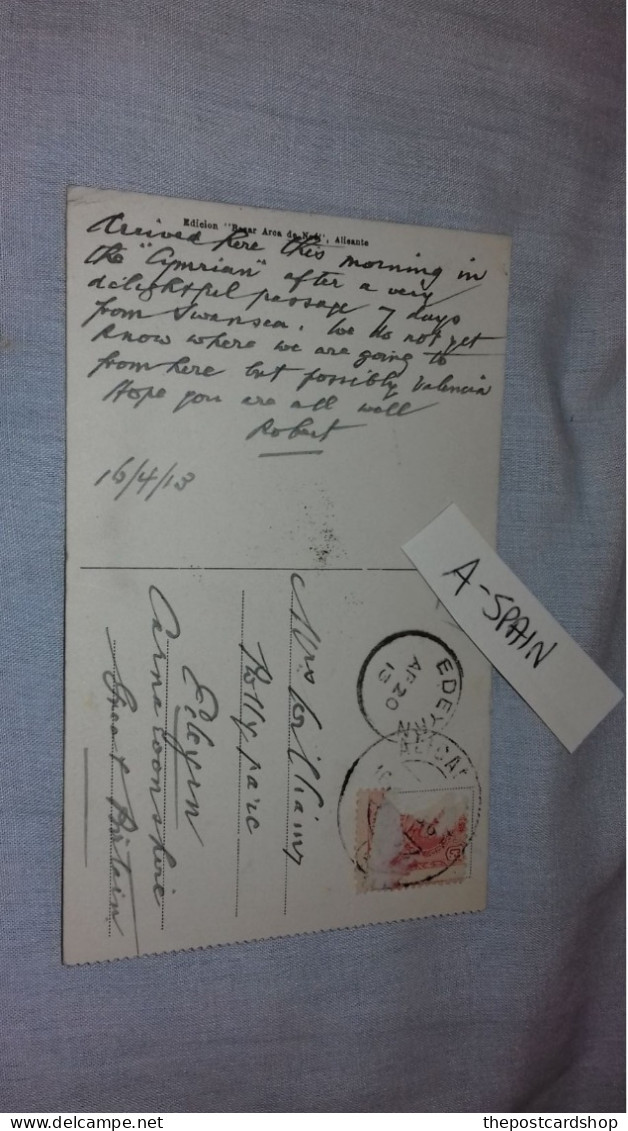 Edicion "Bazar Arca de Noé", Alicante
Arrived here this morning in
the "Cymrian" after a very
delightful passage 7 days
from Swansea. We do not yet
know where we are going to
from here but possibly Valencia
Hope you are all well
Robert
16/4/13
Mrs Williams
Edeyrn
Carnarvonshire
Great Britain
EDEY
AP 20
13
A-SPAIN
thepostcardshop